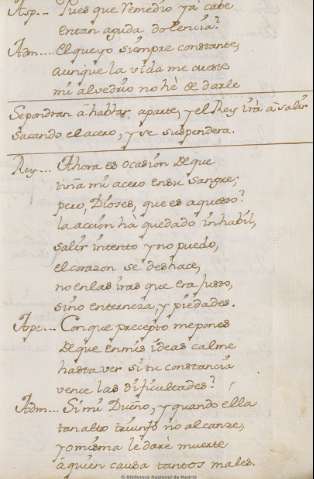 Asp... Pues que remedio ya cave
en tan aguda dolencia?
Adm.... El que yo siempre constante,
aunque la vida me cueste
mi alvedrio no hè de darle
Se pondran à hablar aparte, y el Rey irà à salir
sacando el acero, y se suspendera.
Rey... Ahora es ocasion de que
tina mi acero en su sangre;
pero, Dioses, que es aquesto?
la accion hà quedado inhabil,
salir intento y no puedo,
el corazon se deshace,
no en las iras que era justo,
sino en terneza, y piedades.
Aspe... Con que precepto me pones
de que en mis ideas calme
hasta ver si tu constancia
vence las dificultades?
Adm... Si mi Dueño, y quando ella
tan alto triunfo no alcanze,
yo misma le darè muerte
à quien causa tantos males.
© Biblioteca Nacional de Madrid